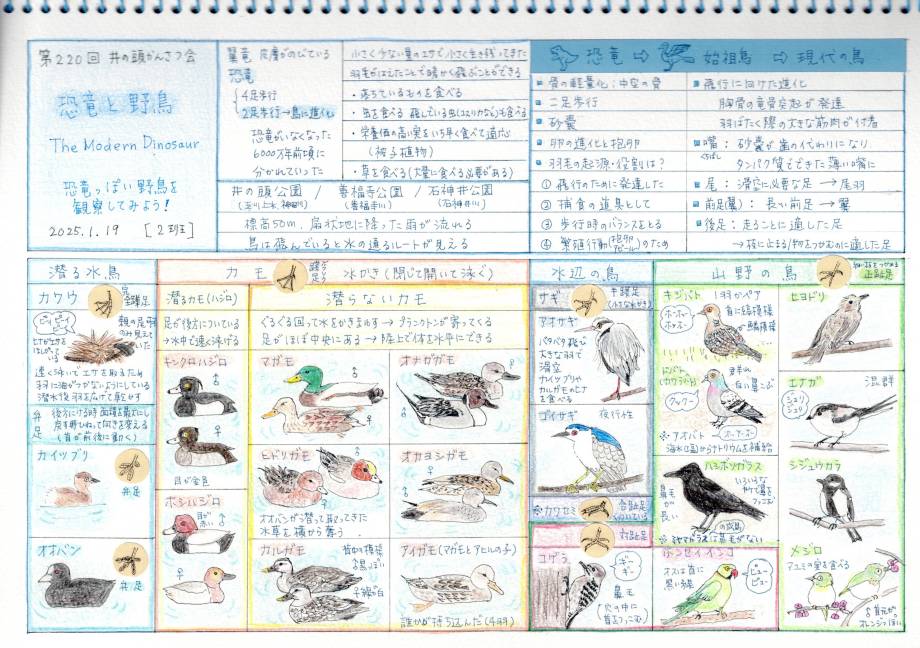 第220回 井の頭かんさつ会
恐竜と野鳥
The Modern Dinosaur
恐竜っぽい野鳥を
観察してみよう!
2025.1.19 [2班]
翼竜 皮膚がのびている
恐竜
4足歩行
2足歩行→鳥に進化
恐竜がいなくなった
6000万年前頃に
分かれていった
小さく少ない量のエサで小さく生き残ってきた
羽毛がはえたことで暖かく飛ぶことができる
・落ちているものを食べる
・虫を食べる 飛んでいる虫(ユスリカなど)も食べる
・栄養価の高い実をいち早く食べて適応
(被子植物)
・草を食べる(大量に食べる必要がある)
井の頭公園 / 善福寺公園 / 石神井公園
(玉川上水、神田川) (善福寺川) (石神井川)
標高50m、扇状地に降った雨が流れる
鳥は飛んでいると水の通るルートが見える
恐竜 ⇨ 始祖鳥 ⇨ 現代の鳥
骨の軽量化:中空の骨
二足歩行
砂嚢
卵の進化と抱卵
羽毛の起源・役割は?
① 飛行のために発達した
② 捕食の道具として
③ 歩行時のバランスをとる
④ 繁殖行動(抱卵 アピール)のため
飛行に向けた進化
胸骨の竜骨突起が発達
羽ばたく際の大きな筋肉が付着
嘴:砂嚢が歯の代わりになり
くちばし
タンパク質でできた薄い嘴に
尾:滑空に必要な足 → 尾羽
前足(翼):長い前足 → 翼
後足:走ることに適した足
→枝に止まる/物をつかむのに適した足
潜る水鳥
カワウ
全蹼足
親の尾羽
のみ見えて
いた
速く泳いでエサを取るため
羽に油がつかないようにしている
潜水後羽を広げて乾かす
弁足
後方にける時面積を最大にし
戻す時ひねって向きを変える
(首が前後に動く)
カイツブリ
弁足
オオバン
弁足
カモ
蹼足
水かき(閉じて開いて泳ぐ)
潜るカモ(ハジロ)
足が後方についている
→水中で速く泳げる
キンクロハジロ
♂
♀
目が金色
ホシハジロ
目が赤い
♂
♀
潜らないカモ
ぐるぐる回って水をかきまわす → プランクトンが寄ってくる
足がほぼ中央にある → 陸上で体を水平にできる
マガモ
♂
♀
ヒドリガモ
♀
♂
オオバンが潜って取ってきた
水草を横から奪う
カルガモ
オナガガモ
♀
♂
オカヨシガモ
♂
♀
アイガモ(マガモとアヒルの子)
誰かが持ち込んだ(4羽)
水辺の鳥
サギ
半蹼足
アオサギ
大きな羽で
滑空
カイツブリや
カルガモのヒナ
を食べる
ゴイサギ 夜行性
※カワセミ
合趾足
対趾足
コゲラ
ギーギー
鼻毛
(穴の中に
首をつっこむ)
山野の鳥
正趾足
キジバト
1羽かペア
首に縞模様
鱗模様
ドバト
(カワラバト)
群れ
白い鼻こぶ
クックー
※アオバト
海水(塩)からナトリウムを補給
ハシボソガラス
鼻毛が
長い
※ミヤマガラスは鼻毛がない
ホンセイインコ
オスは首に
黒い線
ピューピュー
ヒヨドリ
エナガ 混群
ジュリ
ジュリ
シジュウカラ
メジロ